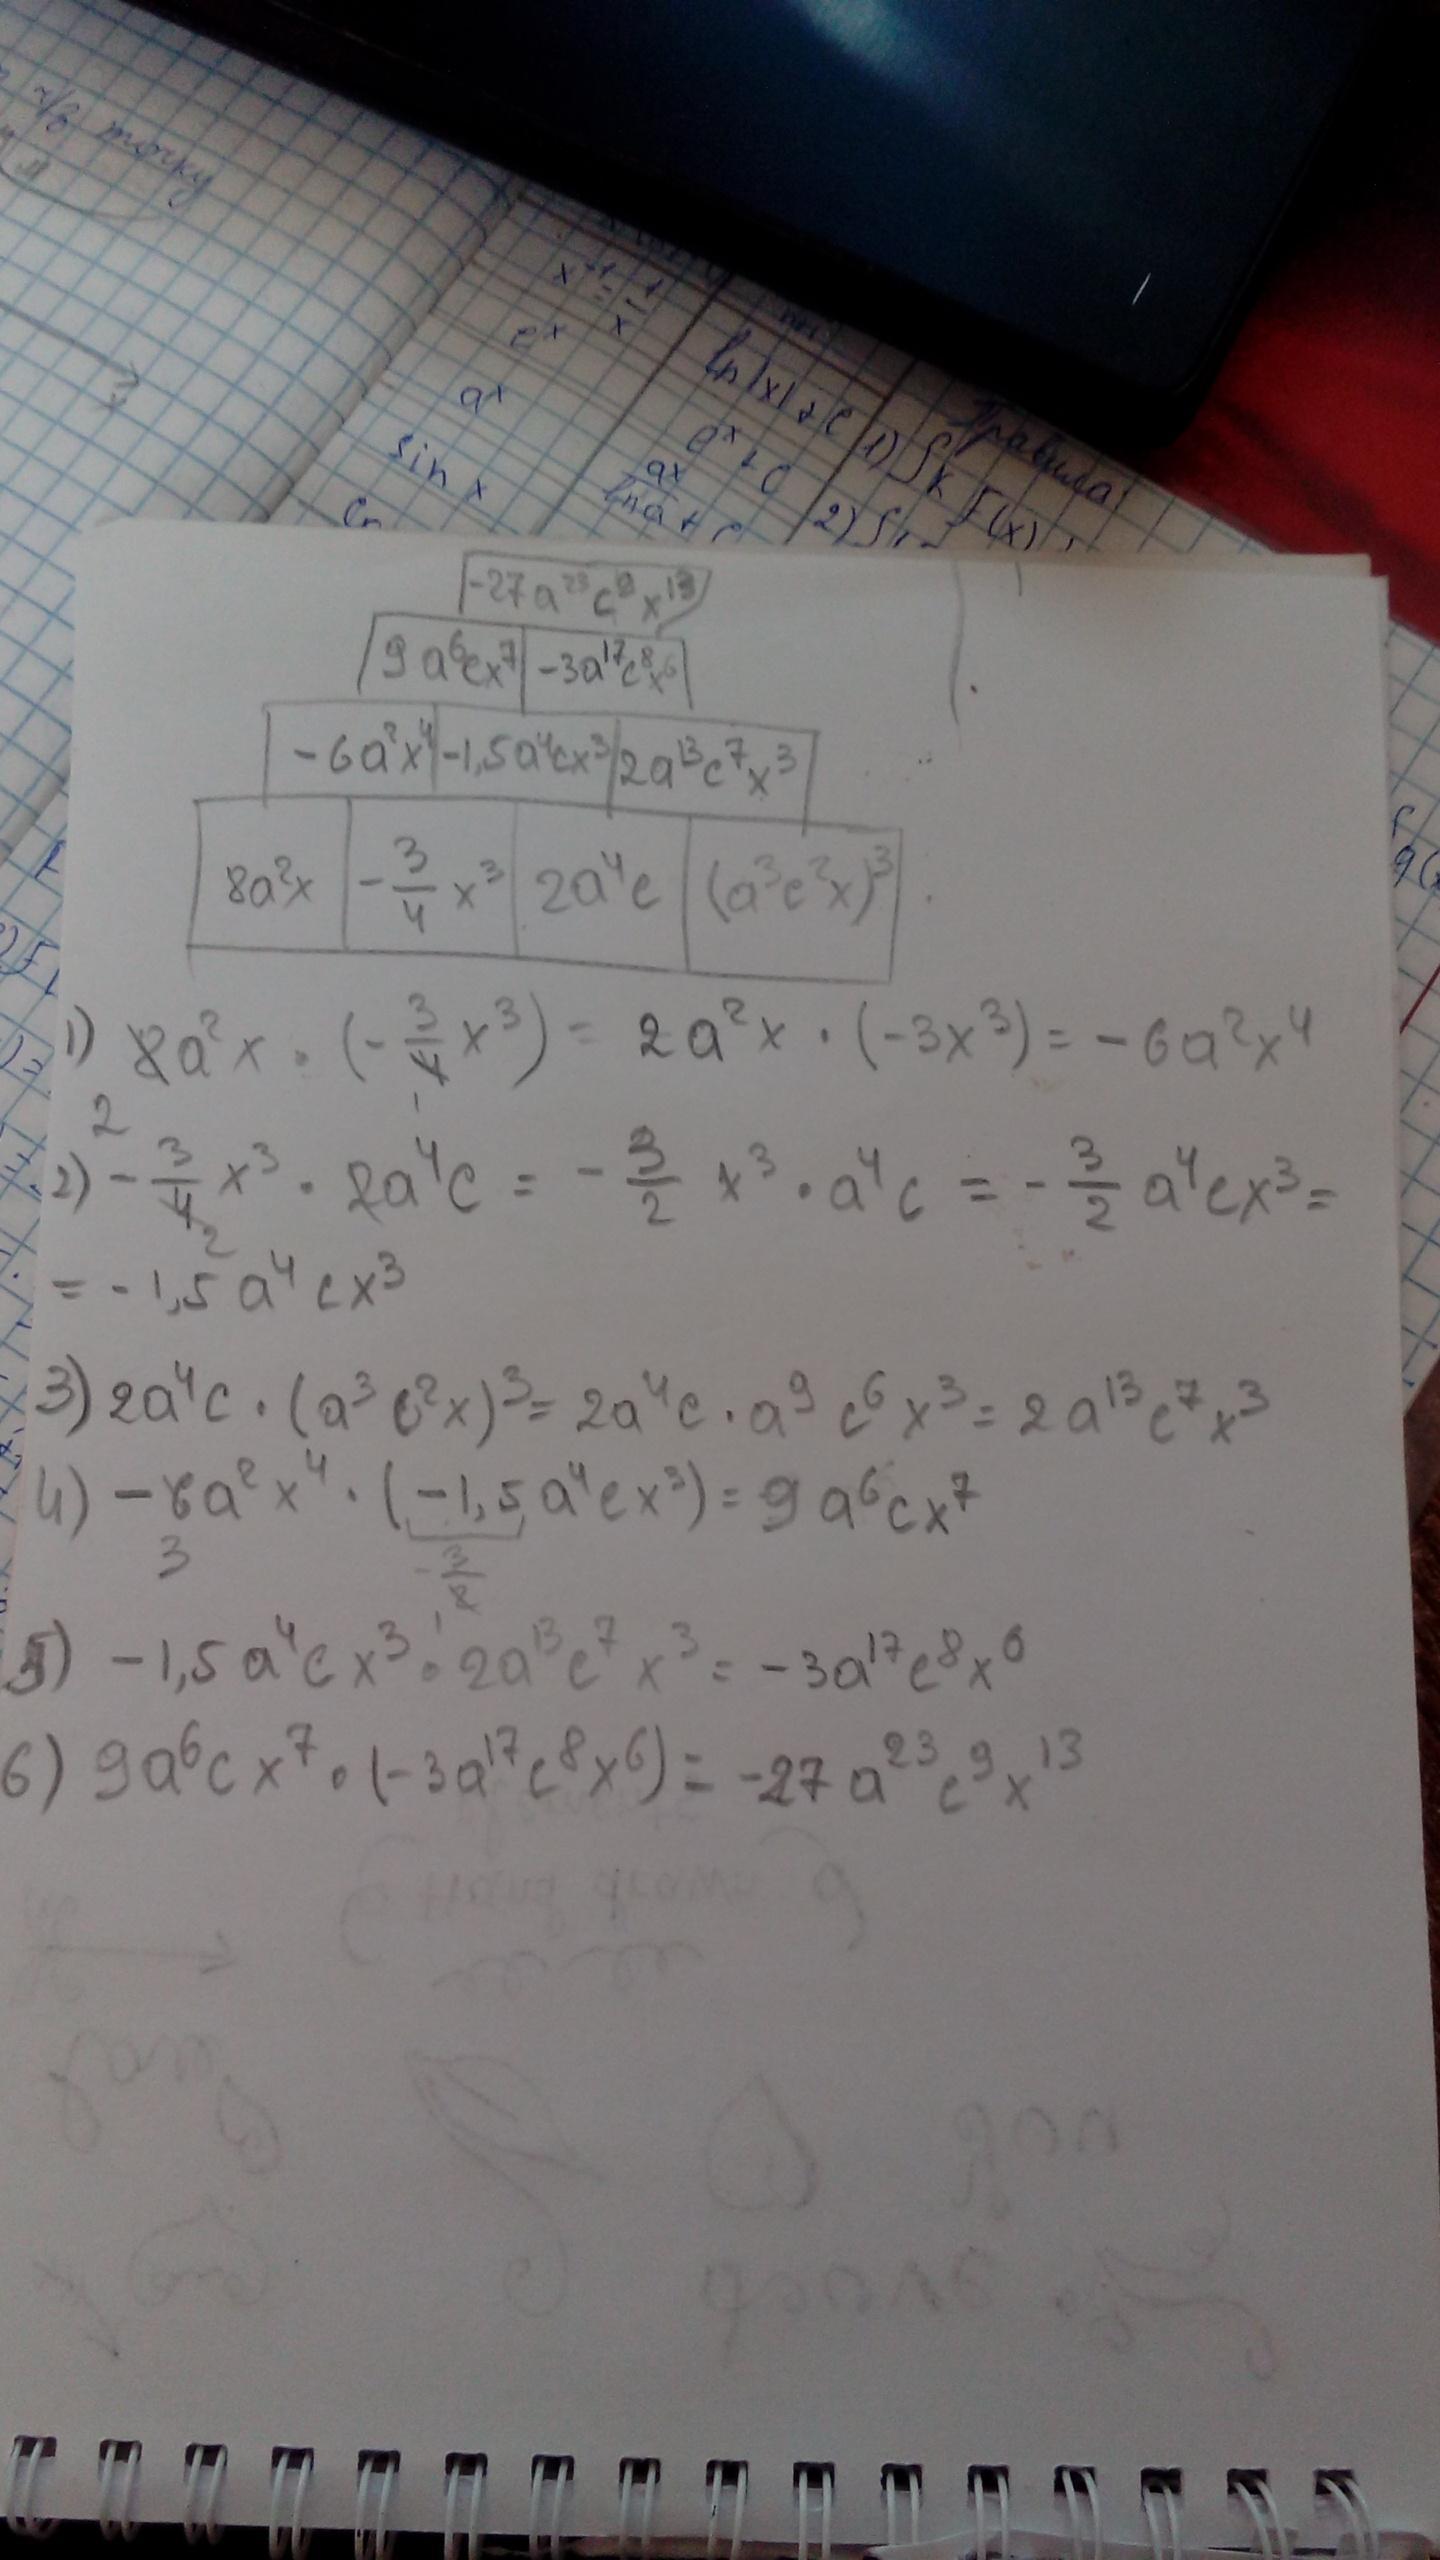 ч/в точку
x⁻¹ = 1/x
eˣ
ln|x| + c
Правила
aˣ
eˣ + c
1) ∫k F(x)
sin x
aˣ/ln a + c
2) ∫
-27a²³c⁹x¹³
9a⁶cx⁷ | -3a¹⁷c⁸x⁶
-6a²x⁴ | -1,5a⁴cx³ | 2a¹³c⁷x³
8a²x | -3/4 x³ | 2a⁴c | (a³c²x)³
1) 8a²x · (-3/4 x³) = 2a²x · (-3x³) = -6a²x⁴
2 1
2) -3/4 x³ · 2a⁴c = -3/2 x³ · a⁴c = -3/2 a⁴cx³ =
2
= -1,5a⁴cx³
3) 2a⁴c · (a³c²x)³ = 2a⁴c · a⁹c⁶x³ = 2a¹³c⁷x³
4) -6a²x⁴ · (-1,5a⁴cx³) = 9a⁶cx⁷
3 -3/2
1
5) -1,5a⁴cx³ · 2a¹³c⁷x³ = -3a¹⁷c⁸x⁶
6) 9a⁶cx⁷ · (-3a¹⁷c⁸x⁶) = -27a²³c⁹x¹³